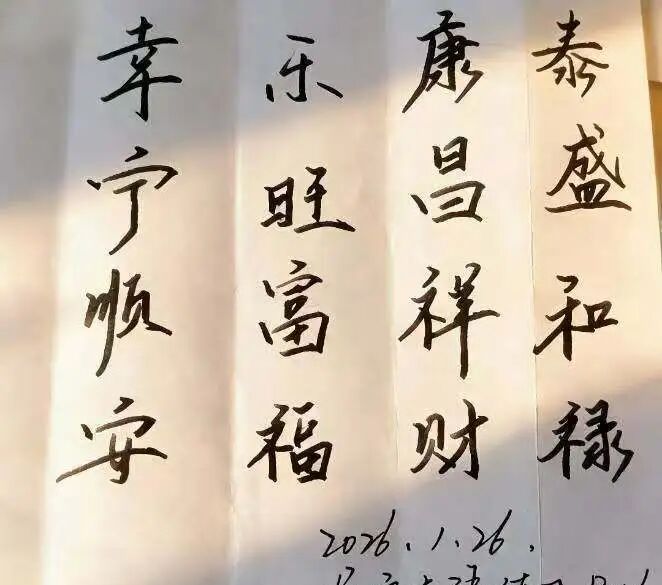 泰盛和禄
康昌祥财
乐旺富福
幸宁顺安
2026.1.26.